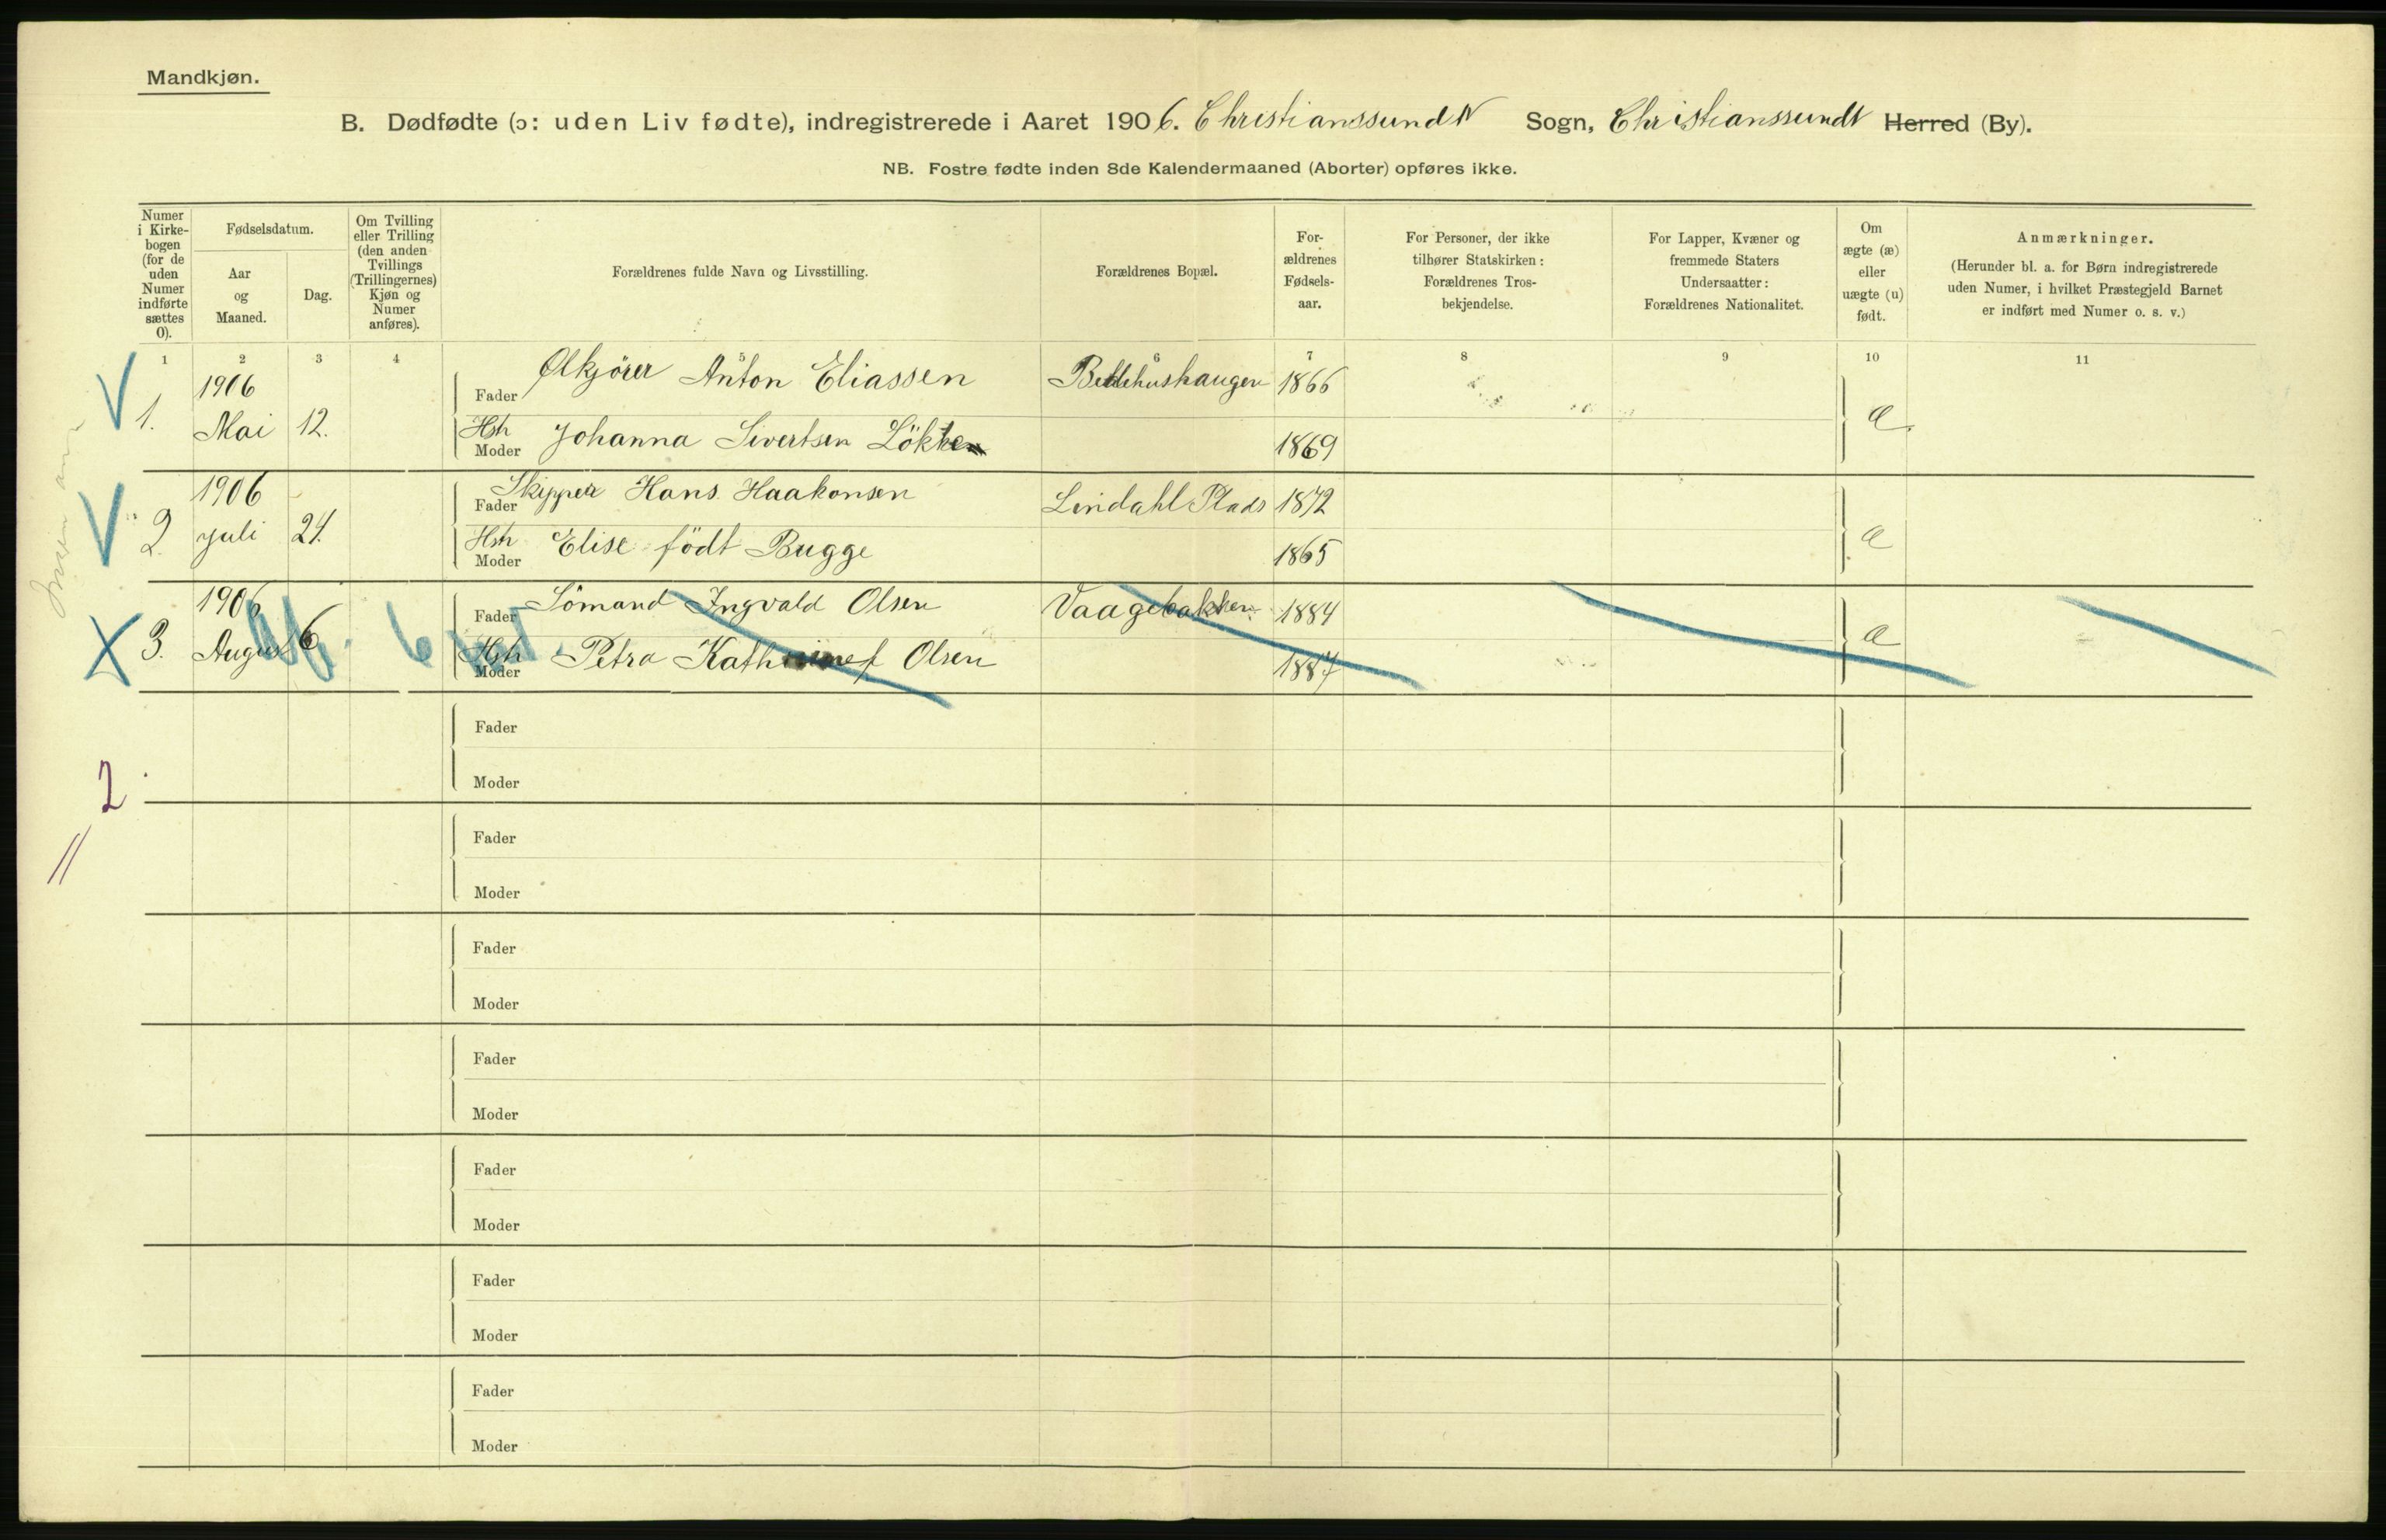 Mandkjøn.
B. Dødfødte (ɔ: uden Liv fødte), indregistrerede i Aaret 1906. Christianssund N Sogn, Christianssund N Herred (By).
NB. Fostre fødte inden 8de Kalendermaaned (Aborter) opføres ikke.
Numer i Kirke-bogen (for de uden Numer indførte sættes 0).
Fødselsdatum.
Aar og Maaned.
Dag.
Om Tvilling eller Trilling (den anden Tvillings (Trillingernes) Kjøn og Numer anføres).
Forældrenes fulde Navn og Livsstilling.
Forældrenes Bopæl.
For-ældrenes Fødsels-aar.
For Personer, der ikke tilhører Statskirken: Forældrenes Tros-bekjendelse.
For Lapper, Kvæner og fremmede Staters Undersaatter: Forældrenes Nationalitet.
Om ægte (æ) eller uægte (u) født.
Anmærkninger.
(Herunder bl. a. for Børn indregistrerede uden Numer, i hvilket Præstegjeld Barnet er indført med Numer o. s. v.)
1 2 3 4 5 6 7 8 9 10 11
1906 Fader Ølkjörer Anton Eliassen 1866
1. Mai 12. Hsh Moder Johanna Sivertsen Lökken 1869 æ
1906 Fader Skipper Hans Haakonsen Lindahl Plads 1872
2. Juli 24. Hsh Moder Elise födt Bugge 1865 æ
1906 Fader Sömand Ingvald Olsen Vaagebakken 1884
3. August 6 Hsh Moder Petra Olsen 1887 æ
Fader
Moder
2
Fader
Moder
Fader
Moder
Fader
Moder
Fader
Moder
Fader
Moder
Fader
Moder